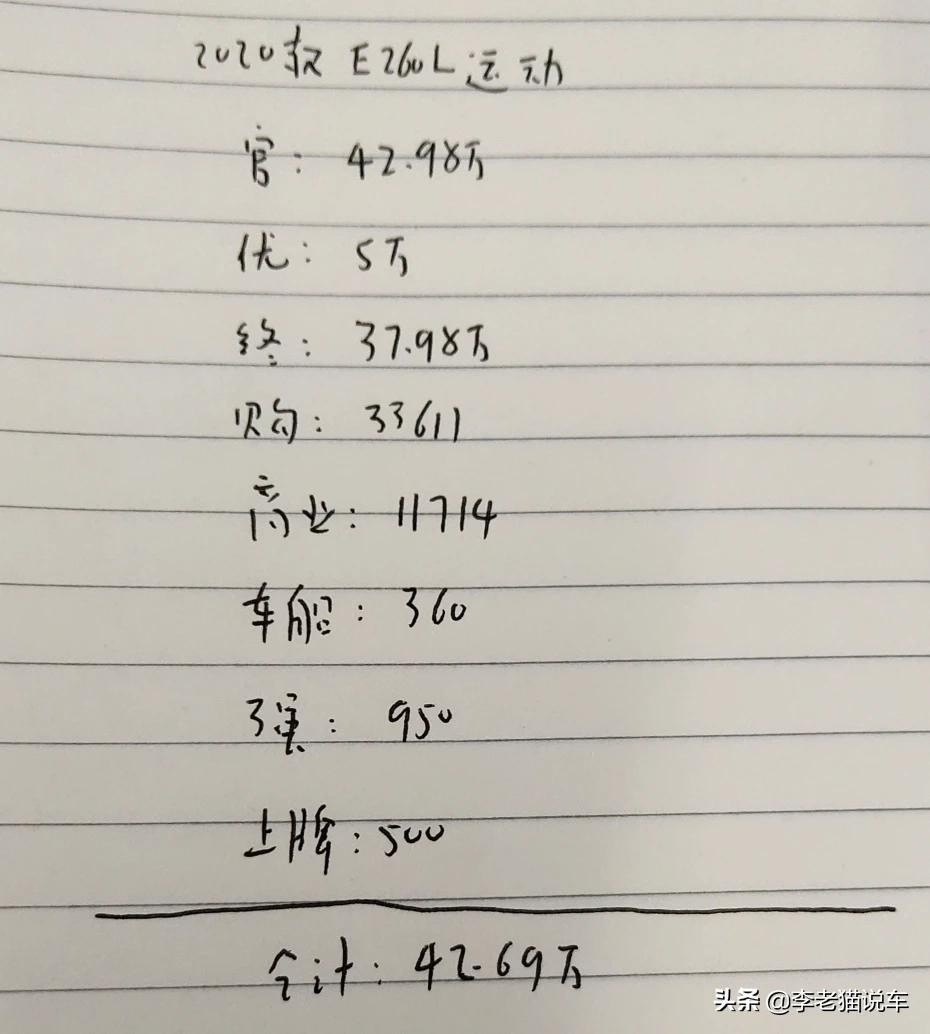 2020款 E260L运动
官: 42.98万
优: 5万
终: 37.98万
购: 33611
商业: 11714
车船: 360
交强: 950
上牌: 500
合计: 42.69万
头条 @李老猫说车